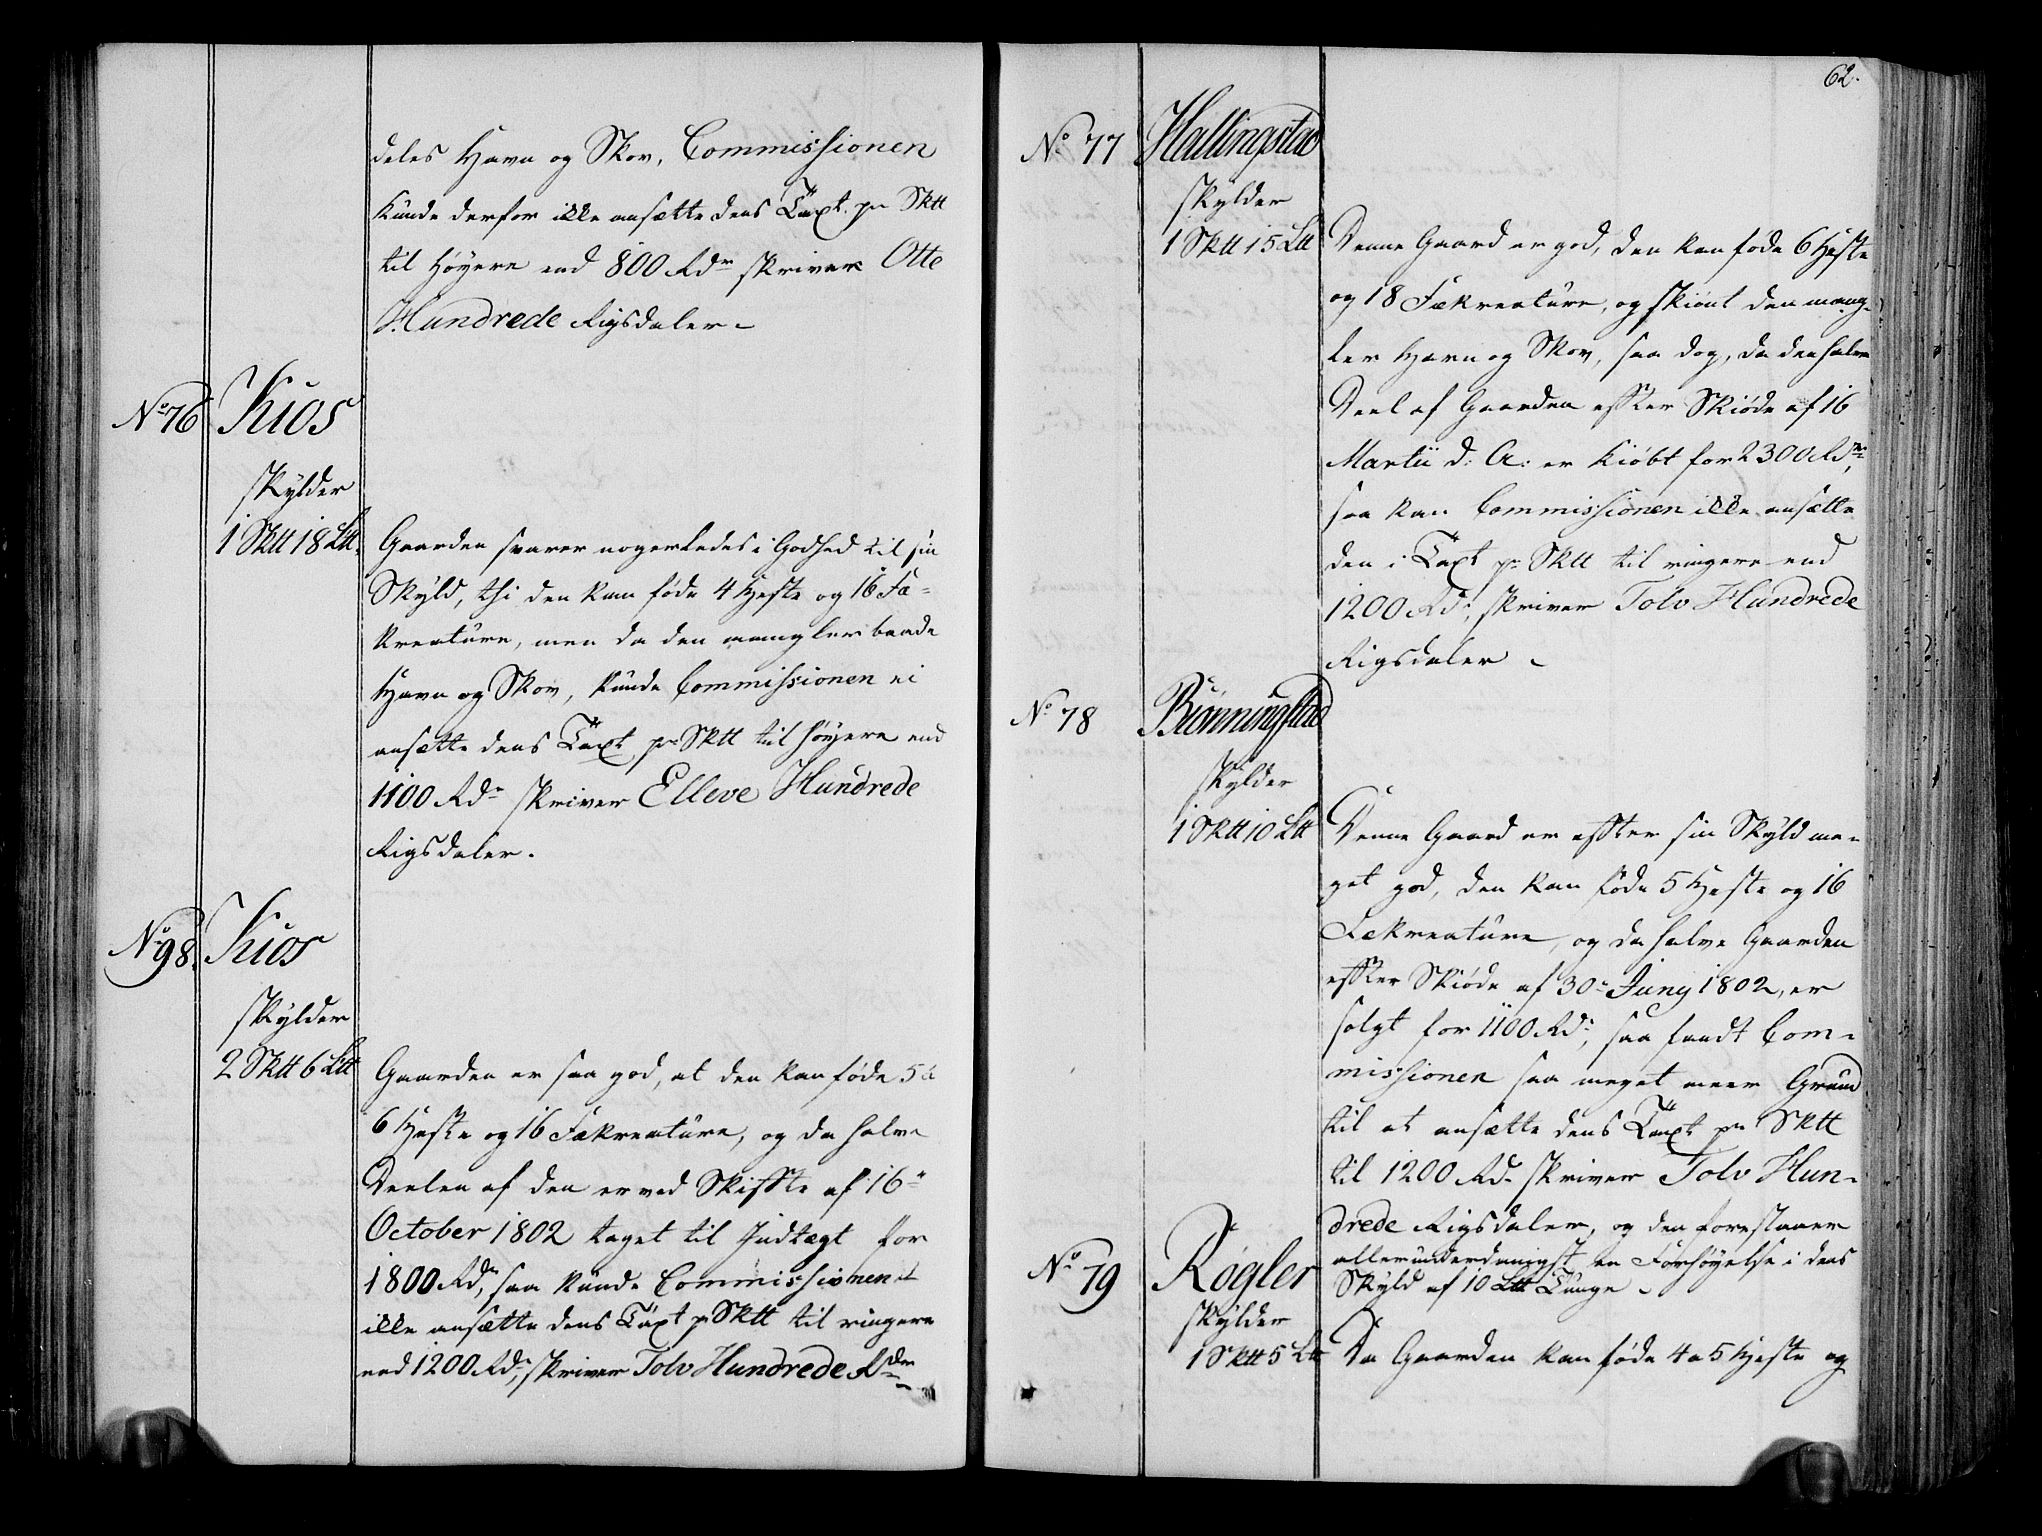 deles Havn og Skov, Commissionen
kunde derfor ikke ansætte dens Taxt pr Sktt
til høyere end 800 Rdr skriver Otte
Hundrede Rigsdaler
No 76
Kios
skylder
1 Sktt 18 Ltt.
Gaarden svarer nogerledes i Godhed til sin
Skyld, thi den kan føde 4 Heste og 16 Fæ-
kreature, men da den mangler baade
Havn og Skov, kunde Commissionen ei
ansætte dens Taxt pr Sktt til høyere end
1100 Rdr skriver Elleve Hundrede
Rigsdaler.
No 98.
Kios
skylder
2 Sktt 6 Ltt
Gaarden er saa god, at den kan føde 5 a
6 Heste og 16 Fækreature, og da halve
Deelen af den er ved Skifte af 16
October 1802 taget til Indtægt for
1800 Rdr, saa kunde Commissionen
ikke ansætte dens Taxt pr Sktt til ringere
end 1200 Rdr, skriver Tolv Hundrede Rdr
62.
No 77
Hallingstad
skylder
1 Sktt 15 Ltt
Denne Gaard er god, den kan føde 6 Heste
og 18 Fækreature, og skiønt den mang-
ler Havn og Skov, saa dog, da den halve
Deel af Gaarden efter Skiøde af 16
Martii d: A: er kiøbt for 2300 Rdr,
saa kan Commissionen ikke ansætte
den i Taxt pr Sktt til ringere end
1200 Rdr, skriver Tolv Hundrede
Rigsdaler
No 78
Brønningstad
skylder
1 Sktt 10 Ltt
Denne Gaard er efter sin Skyld me-
get god, den kan føde 5 Heste og 16
Fækreature, og da halve Gaarden
efter Skiøde af 30 Juny 1802, er
solgt for 1100 Rdr, saa fandt Com-
missionen saa meget meer Grund
til at ansætte dens Taxt pr Sktt
til 1200 Rdr skriver Tolv Hun-
drede Rigsdaler, og den forestaaer
allerunderdanigst en Forhøyelse i dens
Skyld af 10 Ltt Tunge
No 79
Røgler
skylder
1 Sktt 5 Ltt
Da Gaarden kan føde 4 a 5 Heste og